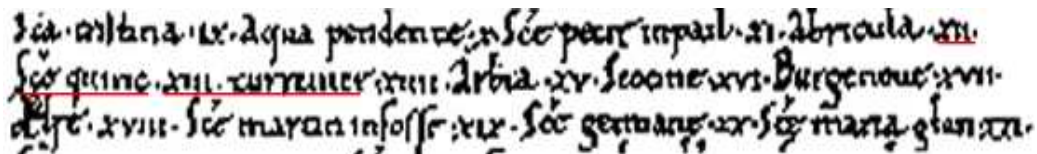 Sca · Cristina · ix · Aqua pendente · x · Sce petir inpail · xi · Abricula · xii ·
Sce quiric · xiii · turreiner · xiiii · Arbia · xv · Seocine · xvi · Burgenoue · xvii ·
Ælse · xviii · Sce martin infosse · xix · Sce gemiane · xx · Sce maria glan · xxi ·